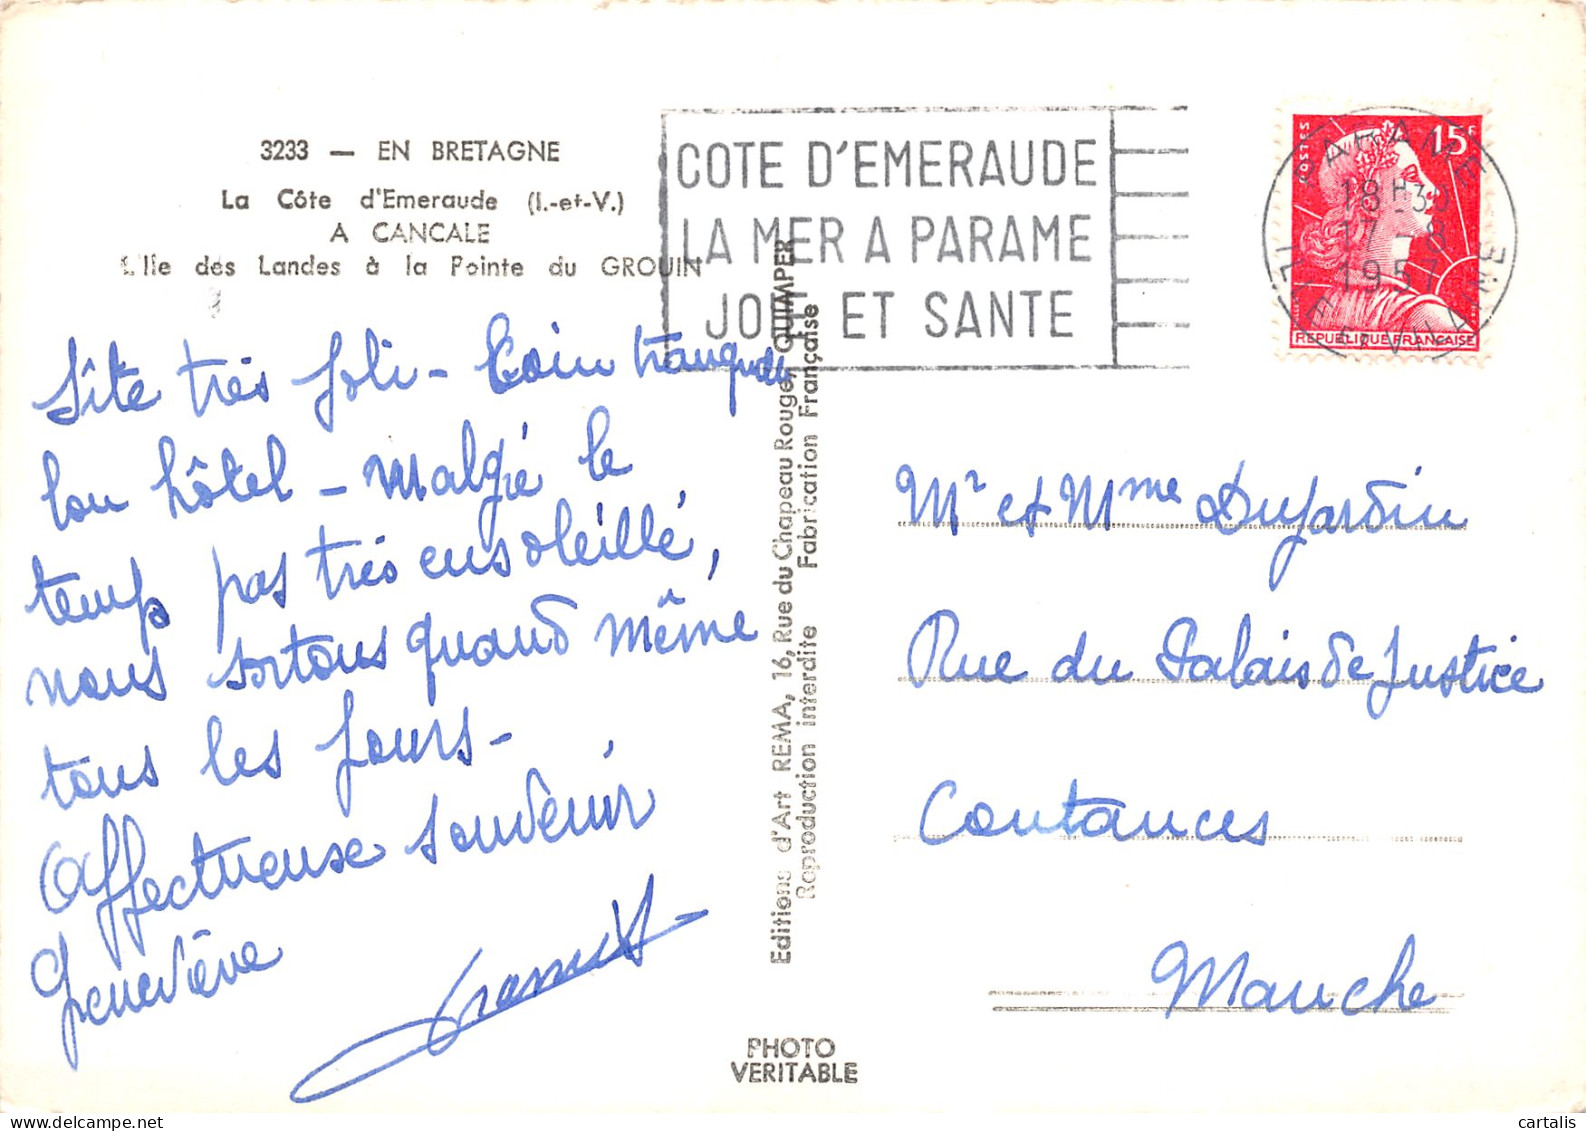 3233 — EN BRETAGNE
La Côte d'Emeraude (I.-et-V.)
A CANCALE
L'Ile des Landes à la Pointe du GROUIN
COTE D'EMERAUDE
LA MER A PARAME
JOIE ET SANTE
POSTES
15F
REPUBLIQUE FRANÇAISE
PARAME
18H30
17 - 8
1957
ILLE ET VILAINE
Site très joli - Coin tranquille
bon hôtel - Malgré le
temps pas très ensoleillé,
nous sortons quand même
tous les jours -
Affectueuse souvenir
Geneviève
Editions d'Art REMA, 16, Rue du Chapeau Rouge, QUIMPER
Reproduction interdite Fabrication Française
Mr et Mme Dujardin
Rue du Palais de Justice
Coutances
Manche
PHOTO
VERITABLE
cartalis